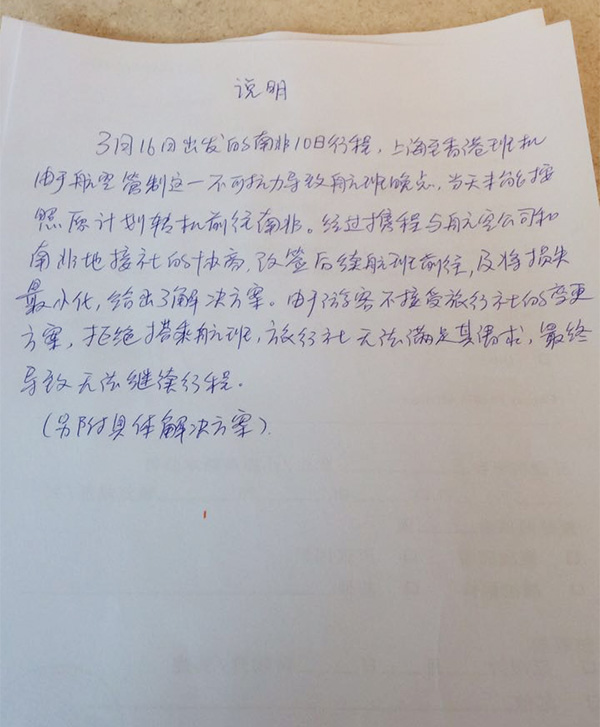 说明
3月16日出发的南非10日行程，上海至香港班机
由于航空管制这一不可抗力导致航班晚点，当天未能按
照原计划转机前往南非。经过携程与航空公司和
南非地接社的协商，改签后续航班前往，及将损失
最小化，给出了解决方案。由于游客不接受旅行社的变更
方案，拒绝搭乘航班，旅行社无法满足其需求，最终
导致无法继续行程。
（另附具体解决方案）.